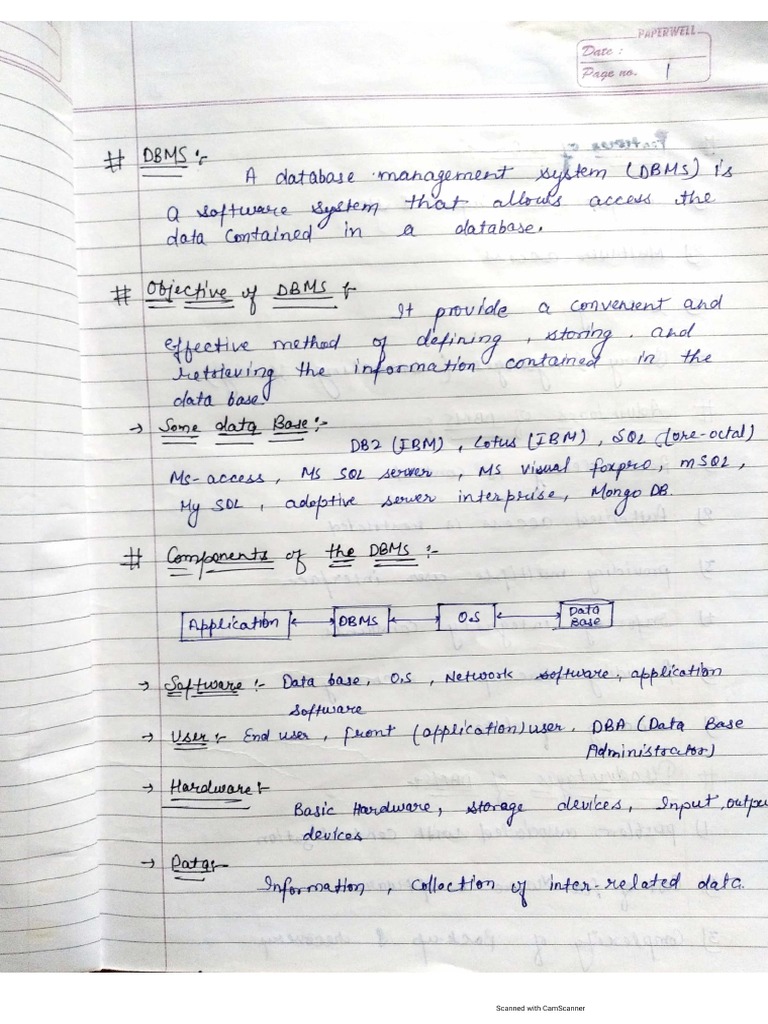 PAPERWELL
Date :
Page no. 1
# DBMS :-
A database management system (DBMS) is
a software system that allows access the
data contained in a database.
# Objective of DBMS :-
It provide a convenient and
effective method of defining, storing and
retrieving the information contained in the
data base.
→ Some data Base :-
DB2 (IBM), Lotus (IBM), SQL (ore-octal)
Ms-access, MS SQL server, MS visual foxpro, mSQL,
My SQL, adoptive server interprise, Mongo DB.
# Components of the DBMS :-
Application DBMS O.S Data Base
→ Software :- Data base, O.S, Network software, application
software
→ User :- End user, front (application) user, DBA (Data Base
Administrator)
→ Hardware :-
Basic Hardware, storage devices, Input, outpu
devices
→ Data :-
Information, collection of inter-related data.
Scanned with CamScanner